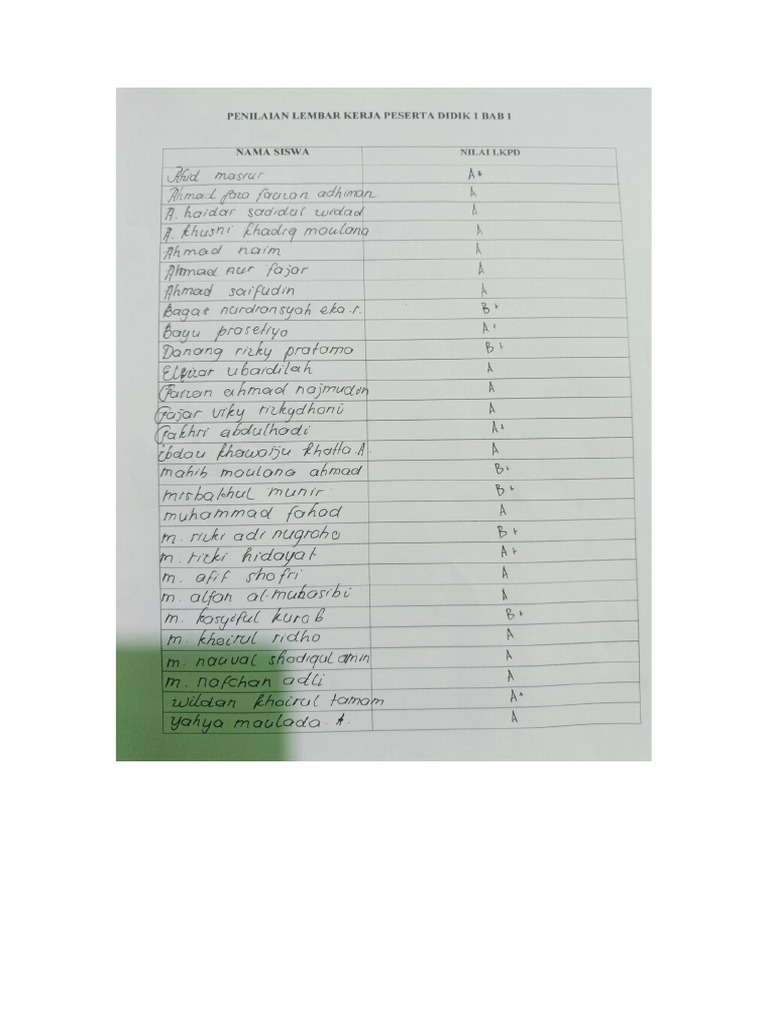 PENILAIAN LEMBAR KERJA PESERTA DIDIK 1 BAB 1
NAMA SISWA NILAI LKPD
Ahid masrur A+
Ahmad faza fauzan adhiman A
A. haidar sadidul widad A
A. khusni khadiq maulana A
Ahmad naim A
Ahmad nur fajar A
Ahmad saifudin A
Bagas nurdiansyah eka.r. B+
Bayu prasetiyo A+
Danang rizky pratama B+
ubaidilah A
Fauzan ahmad najmudin A
Fajar viky rizkydhani A
Fakhri abdulhadi A+
ibdau khawarju khatta A. A
mahib maulana ahmad B+
misbakhul munir B+
muhammad fahad A
m. rizki adi nugroho B+
m. rizki hidayat A+
m. afif shofri A
m. alfan al.muhasibi A
m. kasyiful kurab B+
m. khairul ridho A
m. nauval shadiqul amin A
m. nafchan adli A
wildan khairul tamam A+
yahya maulada. A. A